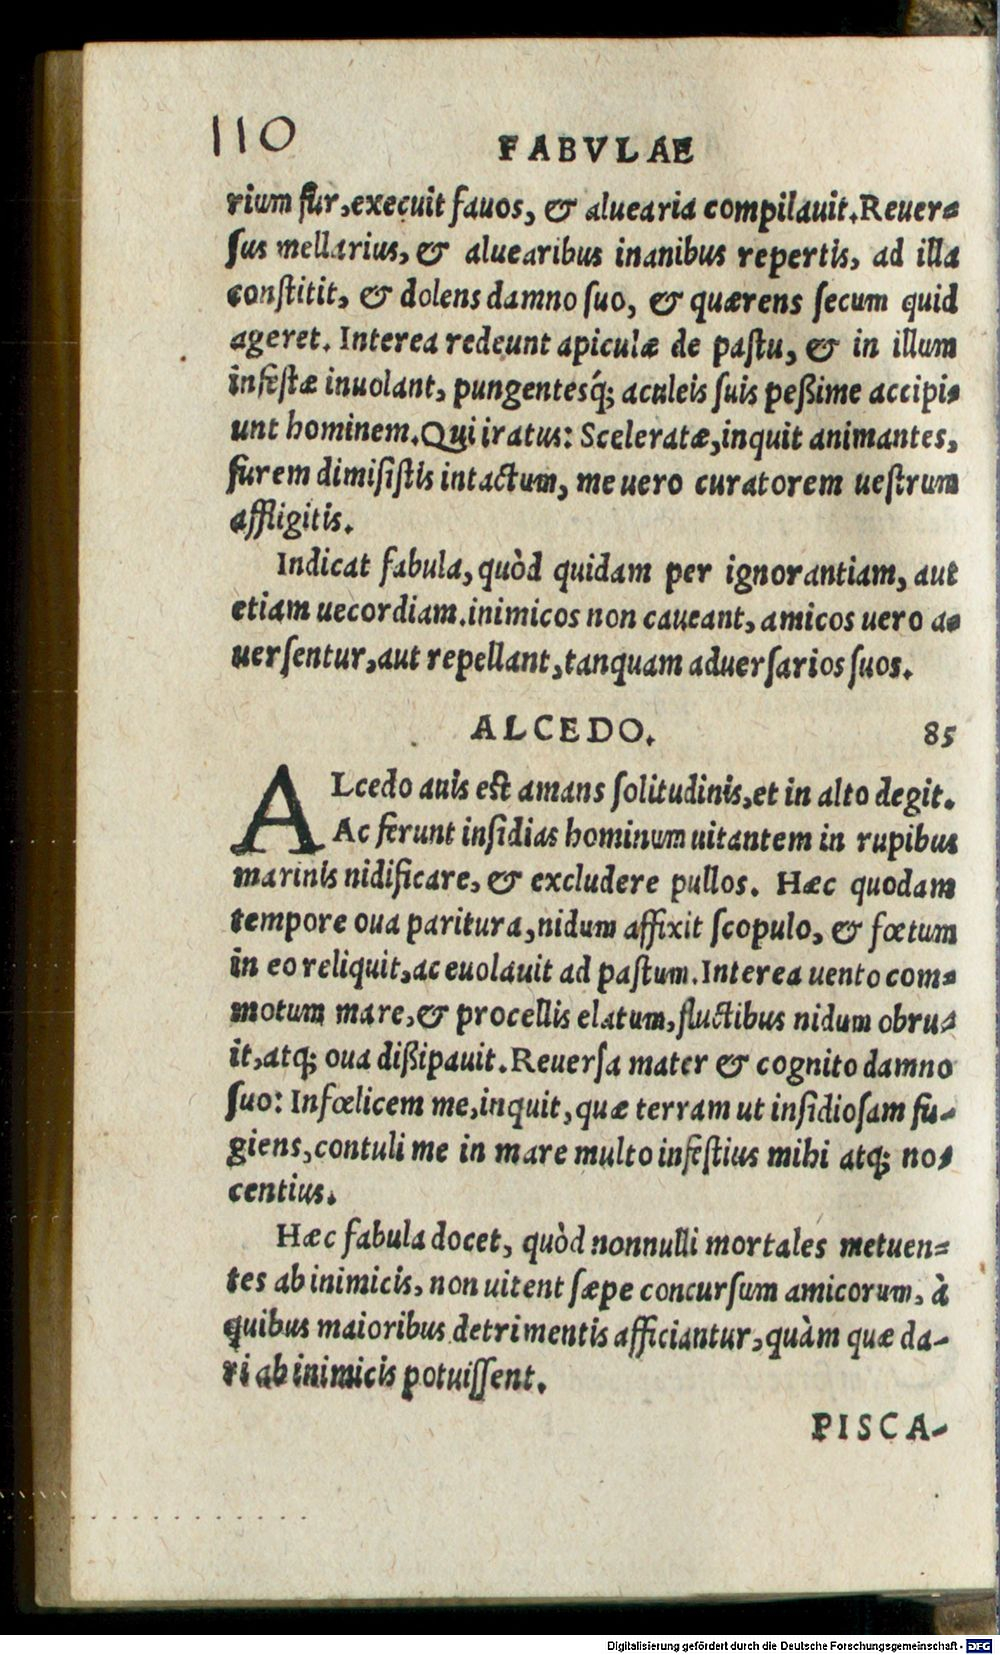 110
FABVLAE
rium fur, execuit fauos, & aluearia compilauit. Reuer=
ſus mellarius, & aluearibus inanibus repertis, ad illa
conſtitit, & dolens damno ſuo, & quærens ſecum quid
ageret. Interea redeunt apiculæ de paſtu, & in illum
infeſtæ inuolant, pungentesq́; aculeis ſuis peßime accipi=
unt hominem. Qui iratus: Sceleratæ, inquit animantes,
furem dimiſiſtis intactum, me uero curatorem ueſtrum
affligitis.
Indicat fabula, quòd quidam per ignorantiam, aut
etiam uecordiam. inimicos non caueant, amicos uero a=
uerſentur, aut repellant, tanquam aduerſarios ſuos.
ALCEDO. 85
ALcedo auis est amans ſolitudinis, et in alto degit.
Ac ferunt inſidias hominum uitantem in rupibus
marinis nidificare, & excludere pullos. Hæc quodam
tempore oua paritura, nidum affixit ſcopulo, & fœtum
in eo reliquit, ac euolauit ad paſtum. Interea uento com=
motum mare, & procellis elatum, fluctibus nidum obru=
it, atq; oua dißipauit. Reuerſa mater & cognito damno
ſuo: Infœlicem me, inquit, quæ terram ut inſidioſam fu-
giens, contuli me in mare multo infeſtius mihi atq; no=
centius.
Hæc fabula docet, quòd nonnulli mortales metuen=
tes ab inimicis, non uitent ſæpe concurſum amicorum, à
quibus maioribus detrimentis afficiantur, quàm quæ da-
ri ab inimicis potuiſſent.
PISCA-
Digitalisierung gefördert durch die Deutsche Forschungsgemeinschaft - DFG